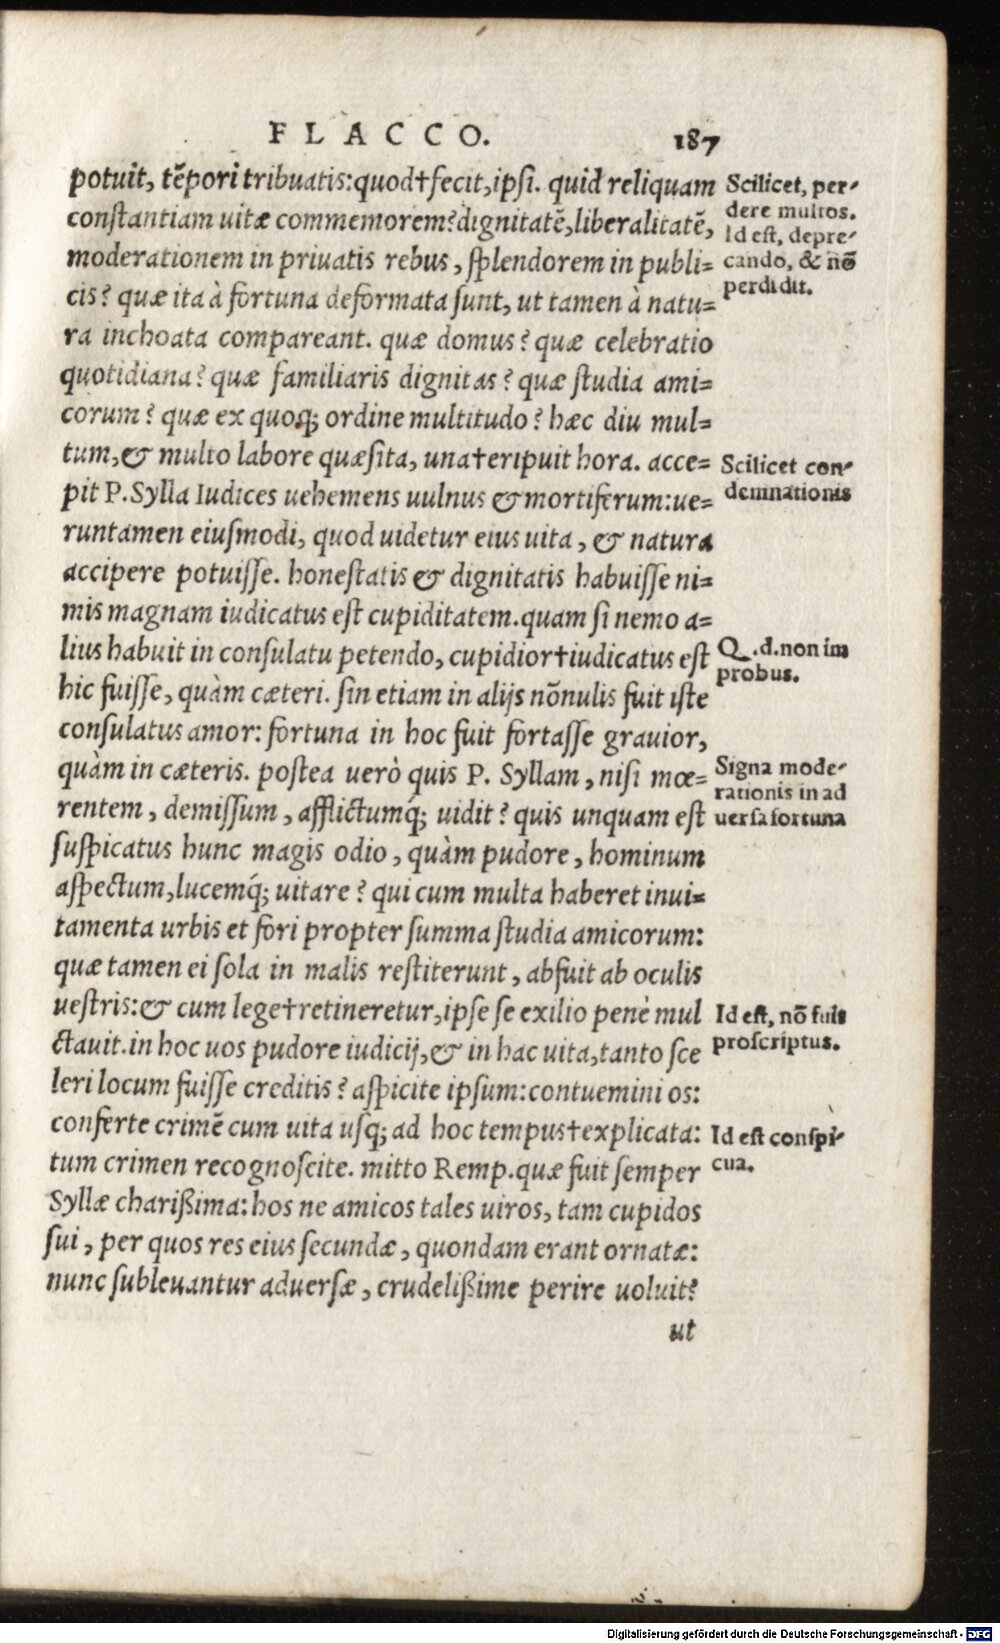 FLACCO. 187
potuit, tẽpori tribuatis:quod†fecit,ipsi. quid reliquam
constantiam uitæ commemorem?dignitatẽ,liberalitatẽ,
moderationem in priuatis rebus, splendorem in publi=
cis? quæ ita à fortuna deformata sunt, ut tamen à natu=
ra inchoata compareant. quæ domus? quæ celebratio
quotidiana? quæ familiaris dignitas? quæ studia ami=
corum? quæ ex quoq; ordine multitudo? hæc diu mul=
tum,& multo labore quæsita, una†eripuit hora. acce=
pit P.Sylla Iudices uehemens uulnus & mortiferum:ue=
runtamen eiusmodi, quod uidetur eius uita, & natura
accipere potuisse. honestatis & dignitatis habuisse ni=
mis magnam iudicatus est cupiditatem.quam si nemo a=
lius habuit in consulatu petendo, cupidior†iudicatus est
hic fuisse, quàm cæteri. sin etiam in alijs nõnulis fuit iste
consulatus amor: fortuna in hoc fuit fortasse grauior,
quàm in cæteris. postea uerò quis P. Syllam, nisi mœ=
rentem, demissum, afflictumq́; uidit? quis unquam est
suspicatus hunc magis odio, quàm pudore, hominum
aspectum,lucemq́; uitare? qui cum multa haberet inui=
tamenta urbis et fori propter summa studia amicorum:
quæ tamen ei sola in malis restiterunt, abfuit ab oculis
uestris:& cum lege†retineretur,ipse se exilio penè mul
ctauit.in hoc uos pudore iudicij,& in hac uita,tanto sce
leri locum fuisse creditis? aspicite ipsum:contuemini os:
conferte crimẽ cum uita usq; ad hoc tempus†explicata:
tum crimen recognoscite. mitto Remp.quæ fuit semper
Syllæ charißima:hos ne amicos tales uiros, tam cupidos
sui, per quos res eius secundæ, quondam erant ornatæ:
nunc subleuantur aduersæ, crudelißime perire uoluit?
ut
Scilicet, per-
dere multos.
Id est, depre-
cando, & nõ
perdidit.
Scilicet con-
demnationis
Q.d.non im
probus.
Signa mode-
rationis in ad
uersa fortuna
Id est, nõ fuit
proscriptus.
Id est conspi-
cua.
Digitalisierung gefördert durch die Deutsche Forschungsgemeinschaft - DFG